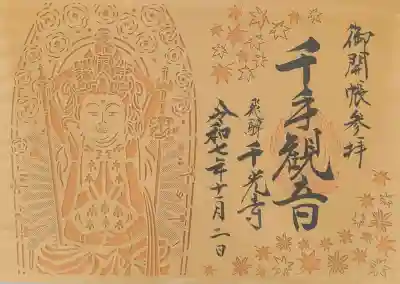 御開帳参拝
千手観音
飛騨千光寺
令和七年十一月二日